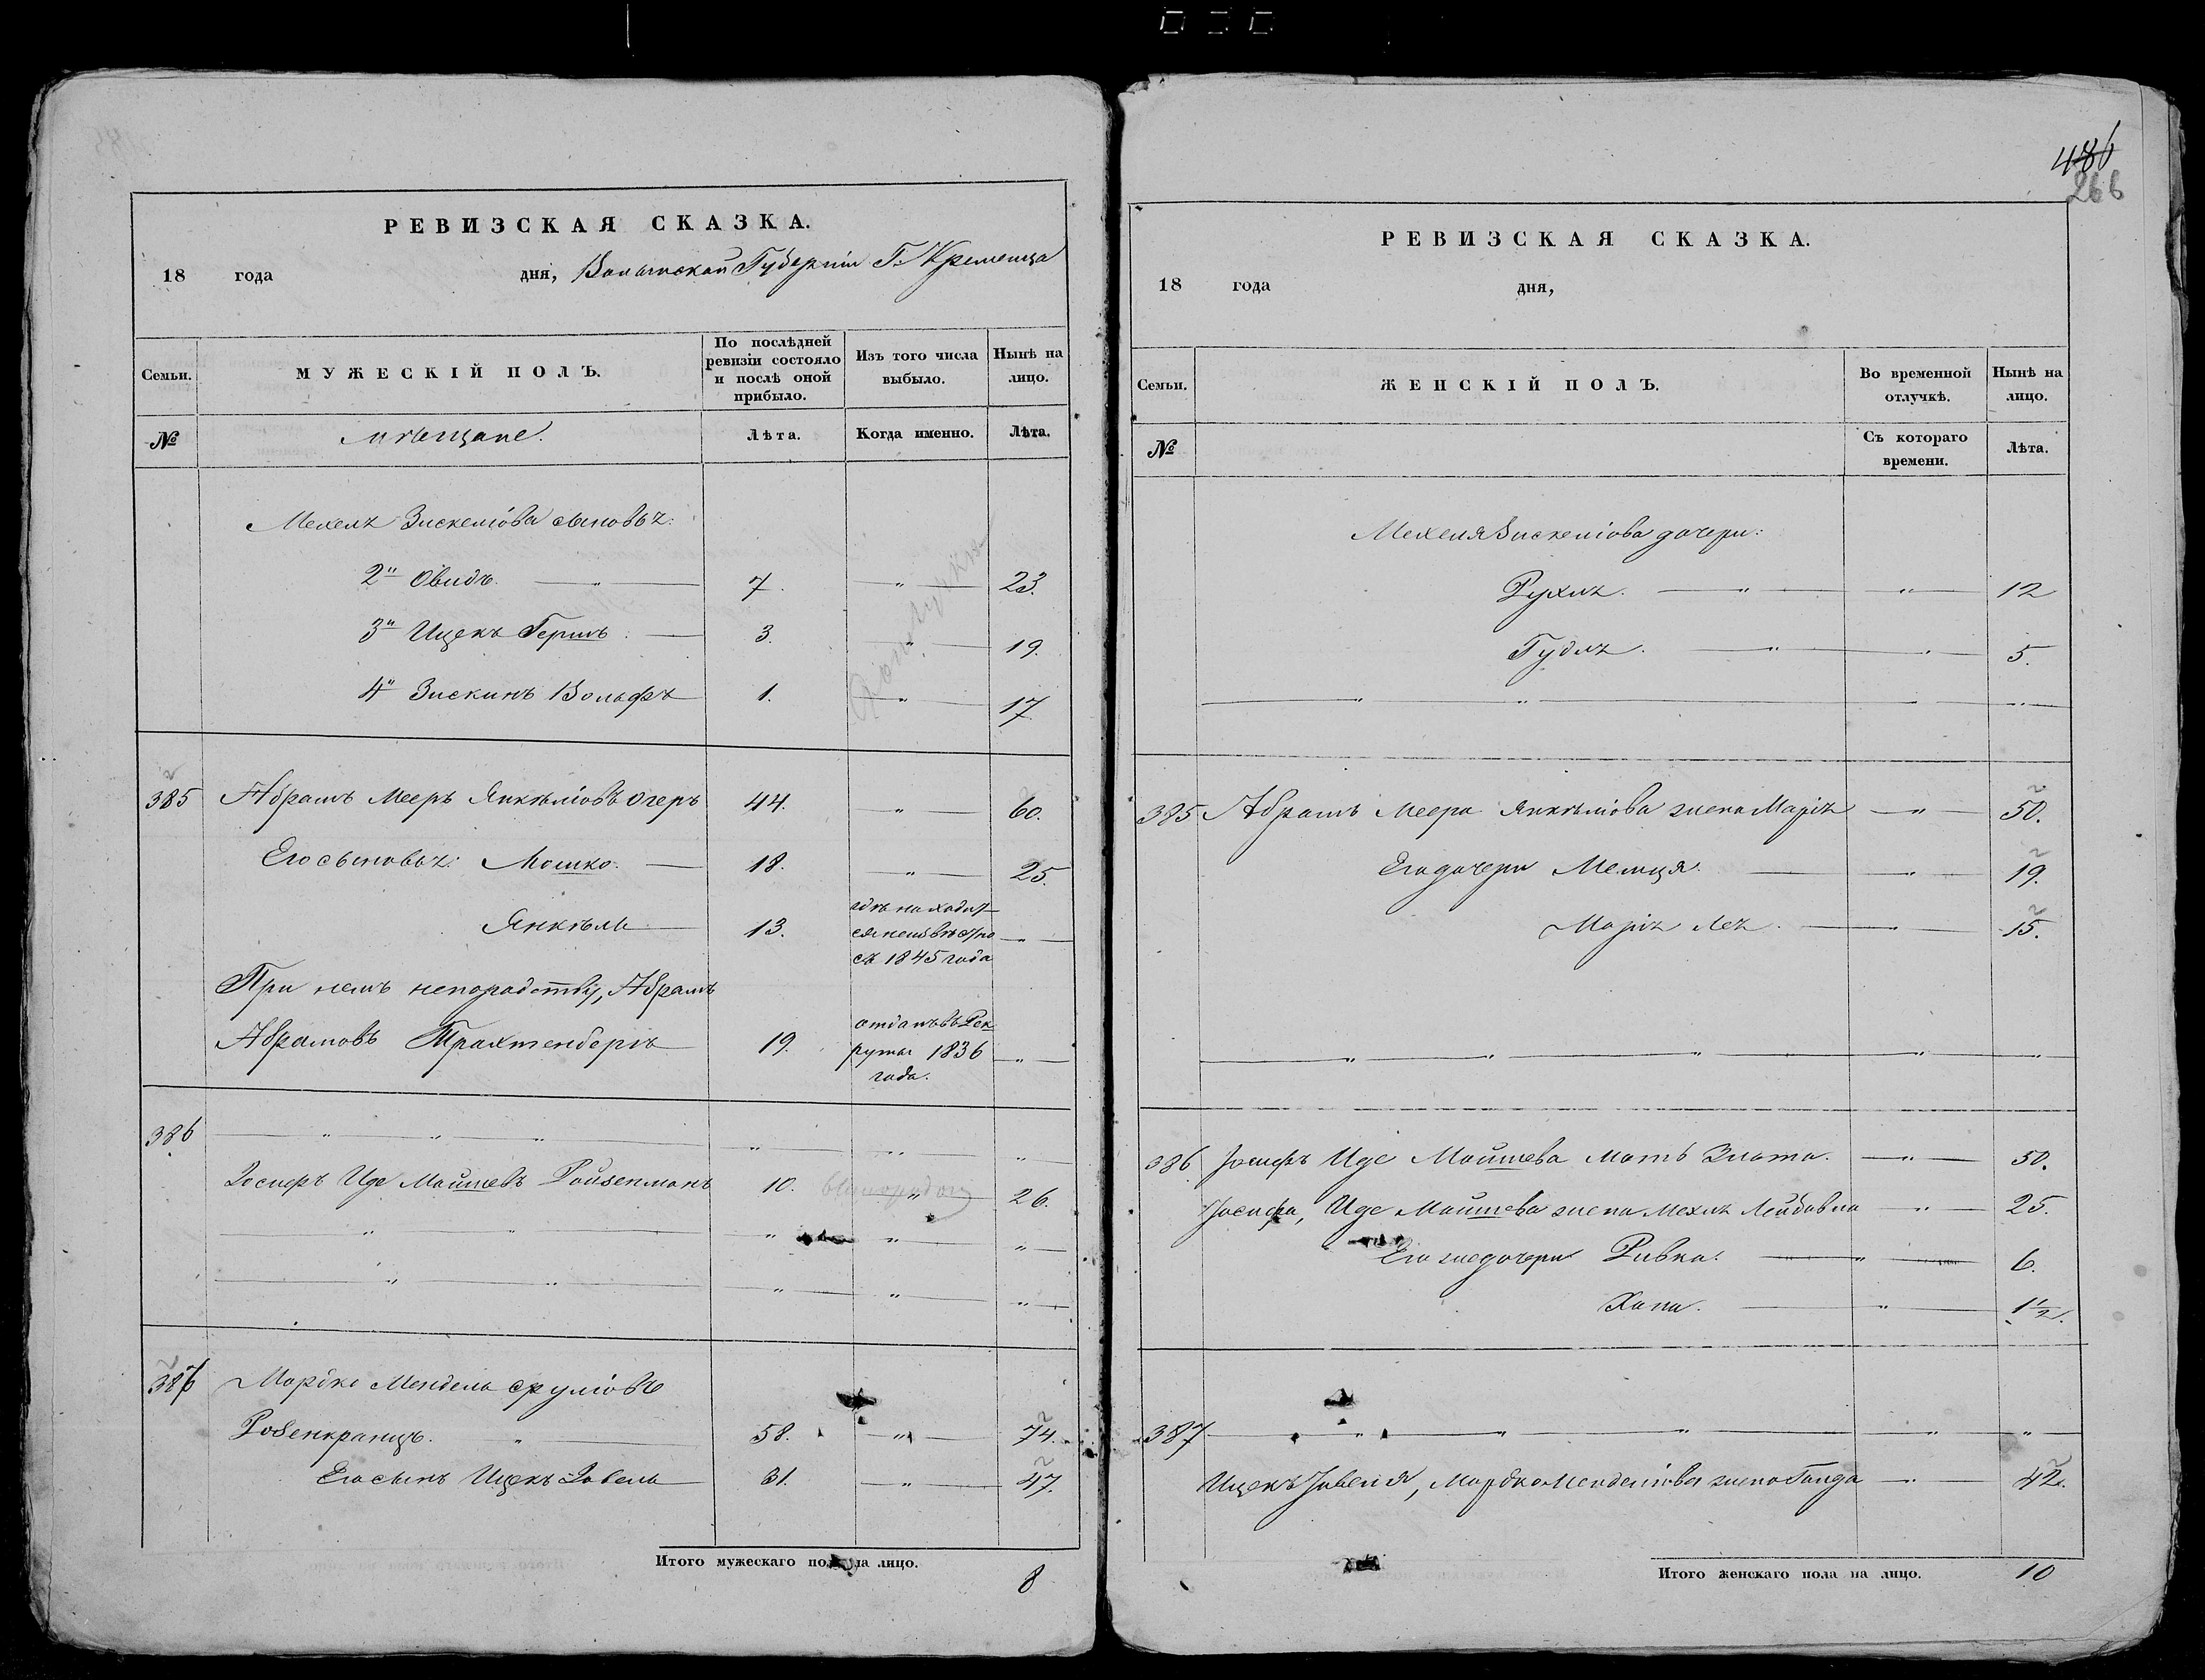 РЕВИЗСКАЯ СКАЗКА.
18 года дня, Волынской Губерніи Г. Кременца
Семьи.
МУЖЕСКІЙ ПОЛЪ.
По послѣдней ревизіи состояло и послѣ оной прибыло.
Изъ того числа выбыло.
Нынѣ на лицо.
№
мѣщане.
Лѣта.
Когда именно.
Лѣта.
Мехеля Зискеліова сыновья:
2" Овидъ. " 7. " 23.
3" Ицекъ Гершъ. 3. " 19.
4" Зискинъ Вольфъ 1. " 17
385 Абрамъ Мееръ Янкѣліовъ Огеръ 44. " 60.
Его сыновья: Мошко. 18. " 25.
Янкѣль 13. гдѣ находит-
ся неизвѣстно "
съ 1845 года
При немъ непорадству, Абрамъ
Абрамовъ Трахтенбергъ 19. отданъ въ Рек
руты 1836 "
года.
386 " " " " " "
Іосифъ Иде Мошкевъ Ройзенманъ 10. " 26.
" " " " "
" " " " "
387 Мордко Мендель Сруліовъ
Розенкранцъ. " 58. " 74.
Его сынъ Ицекъ Зовель 31. " 47.
Итого мужескаго пола на лицо. 8
486
266
РЕВИЗСКАЯ СКАЗКА.
18 года дня,
Семьи.
ЖЕНСКІЙ ПОЛЪ.
Во временной отлучкѣ.
Нынѣ на лицо.
№
Съ котораго времени.
Лѣта.
Мехеля Зискеліова дочери:
Рухля. " " 12
Гудля. " " 5.
" " " "
385 Абрамъ Меера Янкѣліова жена Марія " 50.
Его дочери " 19.
Марія Лея. " 15.
" " " " " "
386 Іосифъ Иде Мошкева Мать Злата. " 50.
Іосифа, Иде Мошкева жена Мехля Лейбовна " 25.
Его же дочери Ривка. " 6.
Хана. " 1 1/2.
387 " " " " "
Ицекъ Зовеля, Мордко Менделіова жена " 42.
Итого женскаго пола на лицо. 10